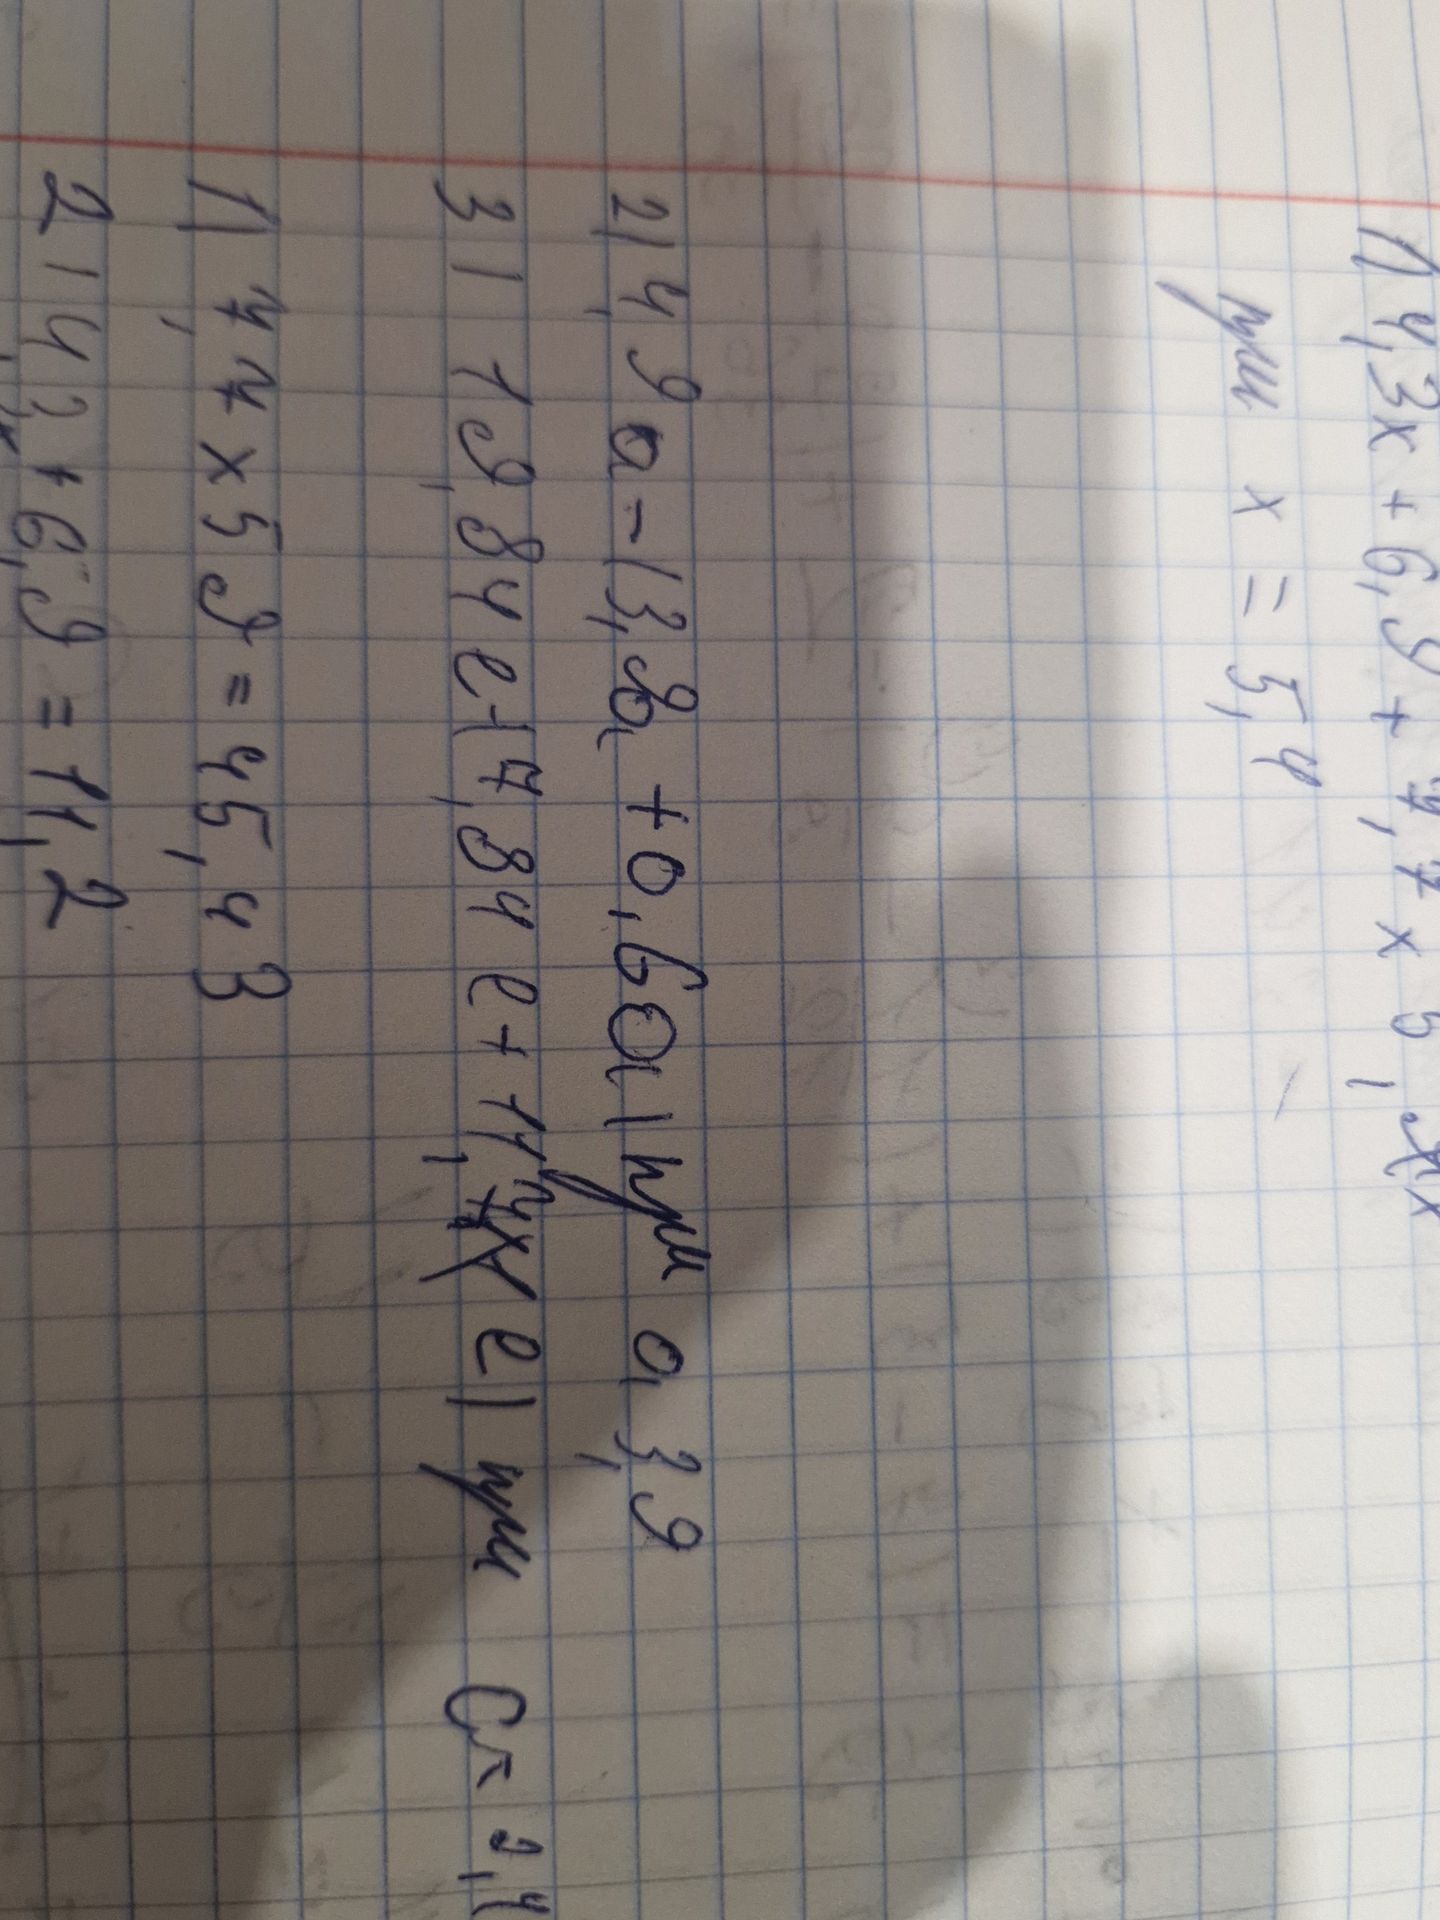 1) 4,3x + 6,9 + 7,7 x 5, x
при x = 5,4
2) 4,9a - 13,8a + 0,6a) при a 3,9
3) 19,84 e - 17,84 e + 11, e) при C = 2,4
1) 7,7 x 59 = 45,43
2) 4,3 + 6,9 = 11,2